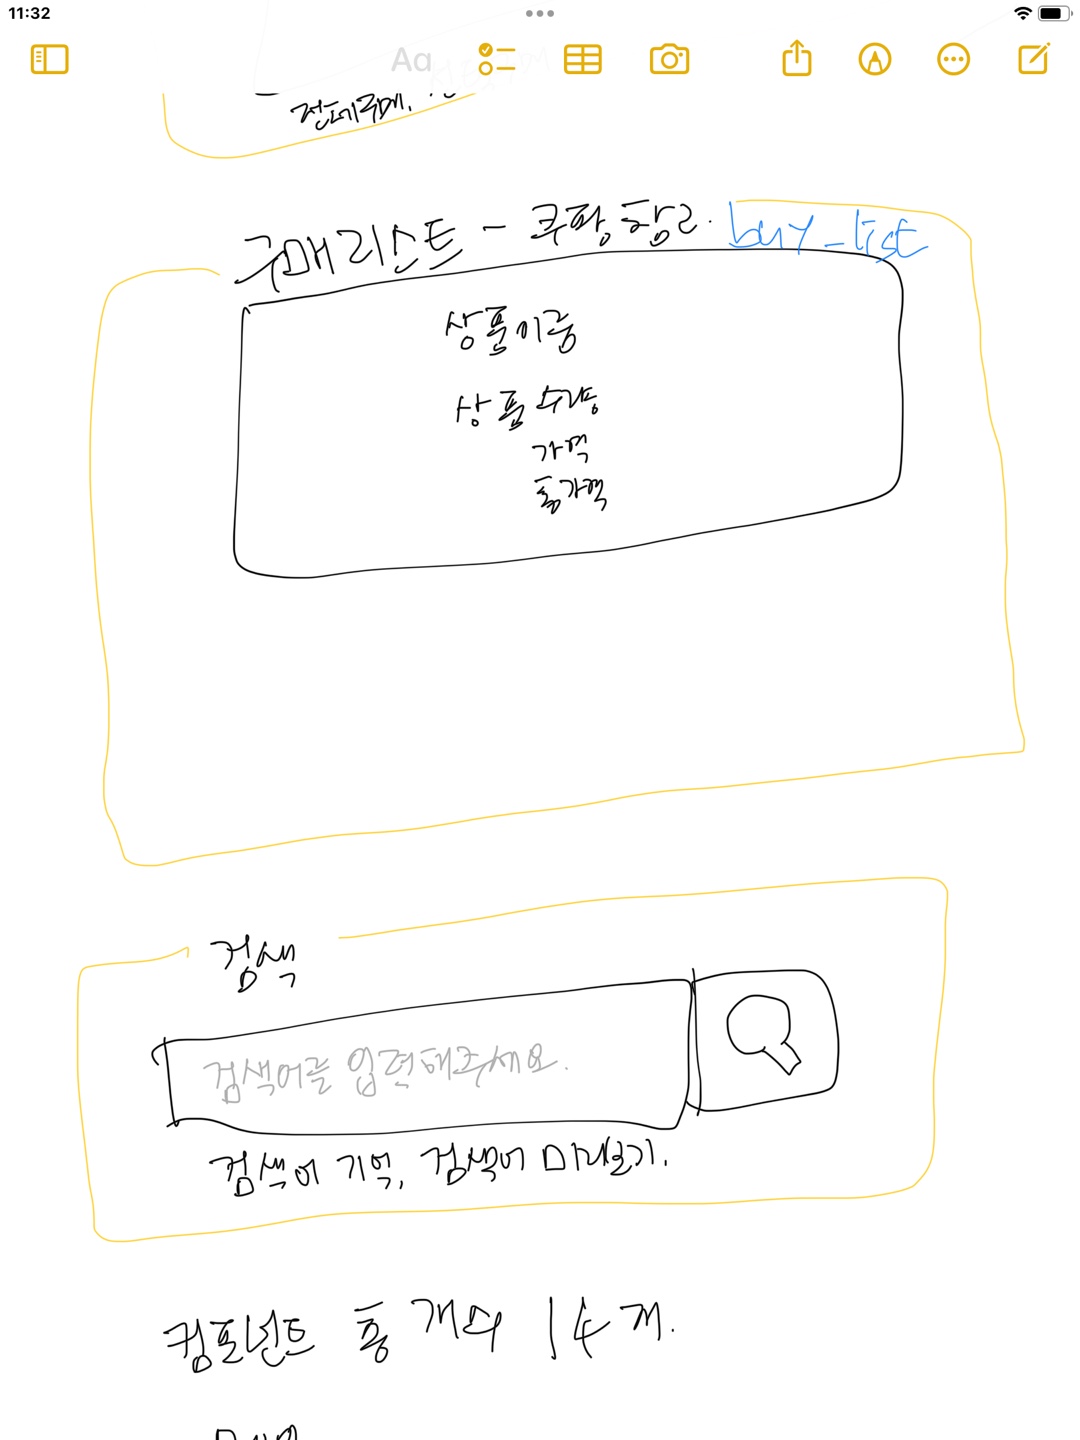 11:32
Aa
전체구매,
구매리스트 - 쿠팡 참고. buy_list
상품이름
상품 수량
가격
총가격
검색
검색어를 입력해주세요.
검색어 기억, 검색어 미리보기.
컴포넌트 총 개수 14개.